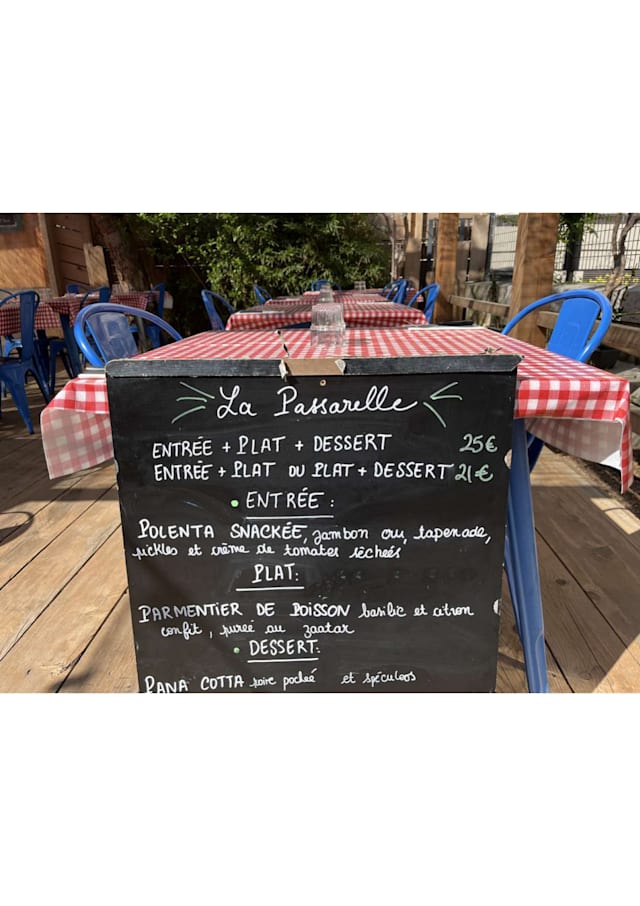 La Passarelle
ENTRÉE + PLAT + DESSERT 25€
ENTRÉE + PLAT OU PLAT + DESSERT 21€
• ENTRÉE :
POLENTA SNACKÉE, jambon cru, tapenade,
pickles et crème de tomates séchées
PLAT:
PARMENTIER DE POISSON basilic et citron
confit, purée au zaatar
• DESSERT:
PANA COTTA poire pochée et spéculoos